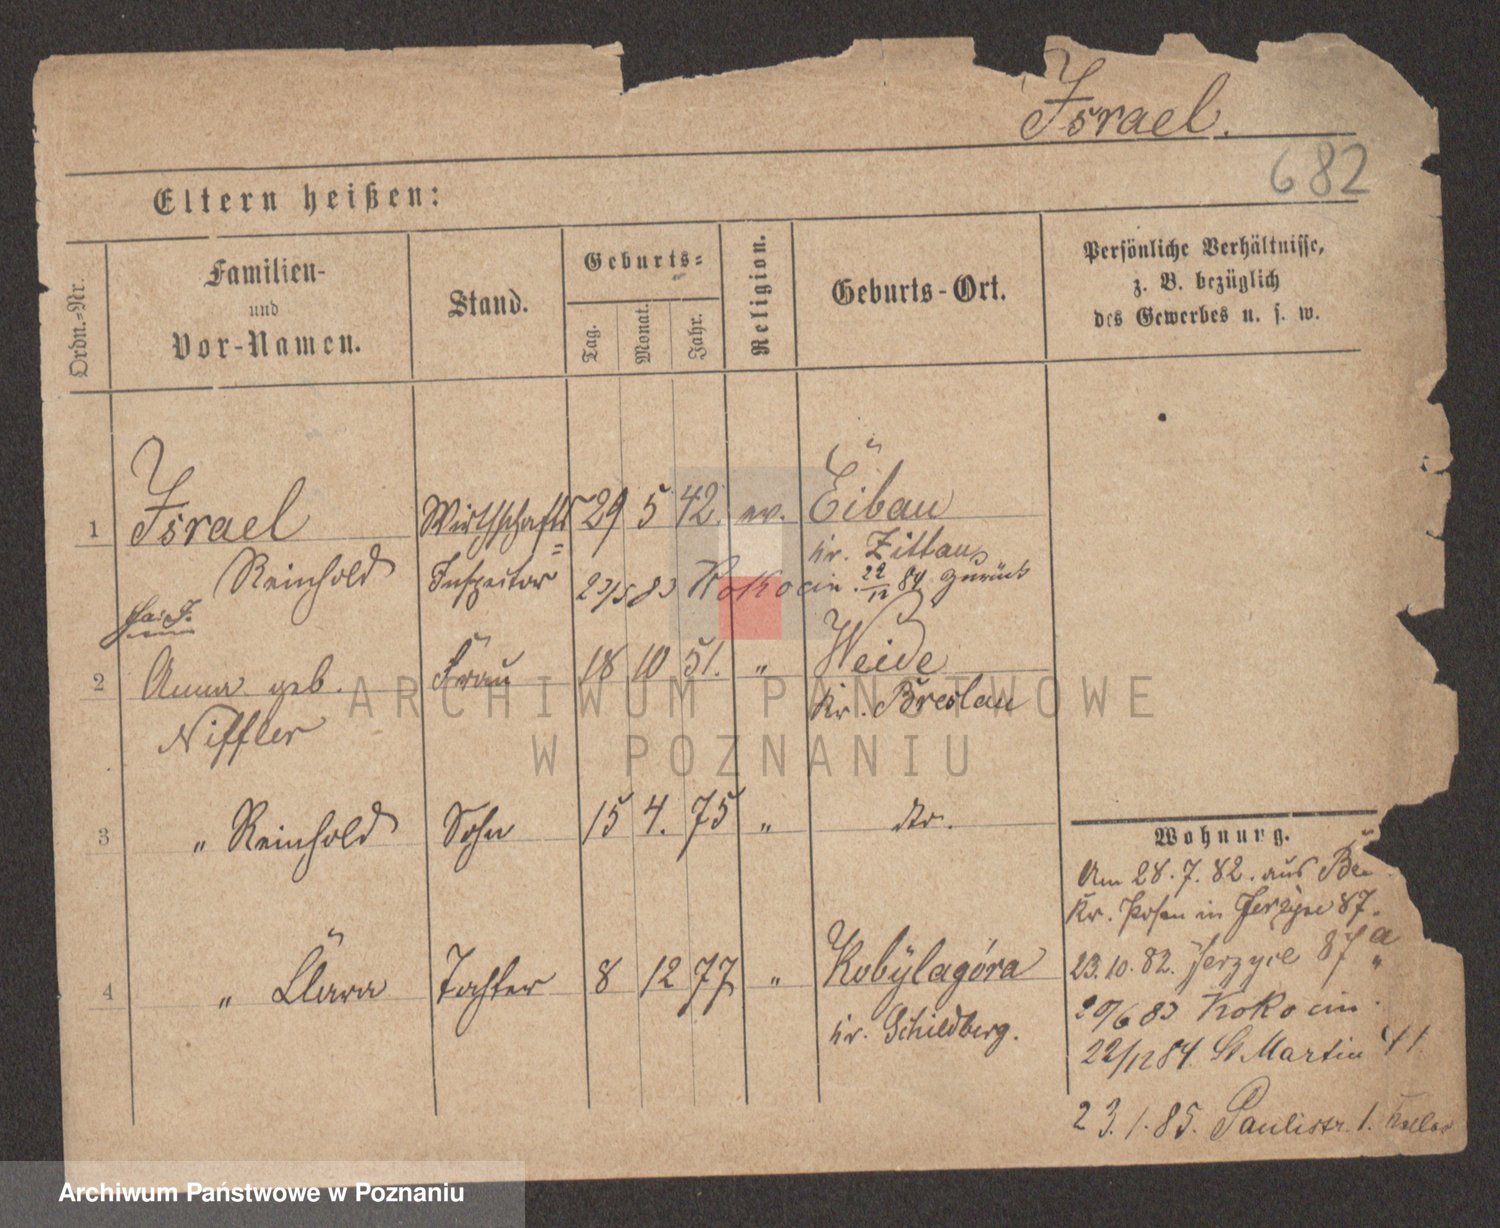 Israel.
682
Eltern heißen:
Ordn.-Nr.
Familien-
und
Vor-Namen.
Stand.
Geburts-
Tag.
Monat.
Jahr.
Religion.
Geburts-Ort.
Persönliche Verhältnisse,
z. B. bezüglich
des Gewerbes u. s. w.
1 Israel Wirthschafts= 29 5 42. ev. Eibau
kr. Zittau
Reinhold Inspector 23/5 83 Kokocin. 22/12 84 zurück
2 Anna geb. Frau 18 10 51. " Weide
Niffler Kr. Breslau
3 " Reinhold Sohn 15 4. 75 " dto.
4 " Clara Tochter 8 12 77 " Kobylagóra
kr. Schildberg.
Wohnung.
Am 28.7.82. aus
Kr. Posen in 87.
23.10.82. Jerzyce 87a
20/6 83 Kokocin.
22/12 84. St Martin 41
23.1.85. Paulistr. 1.
ARCHIWUM PAŃSTWOWE
W POZNANIU
Archiwum Państwowe w Poznaniu